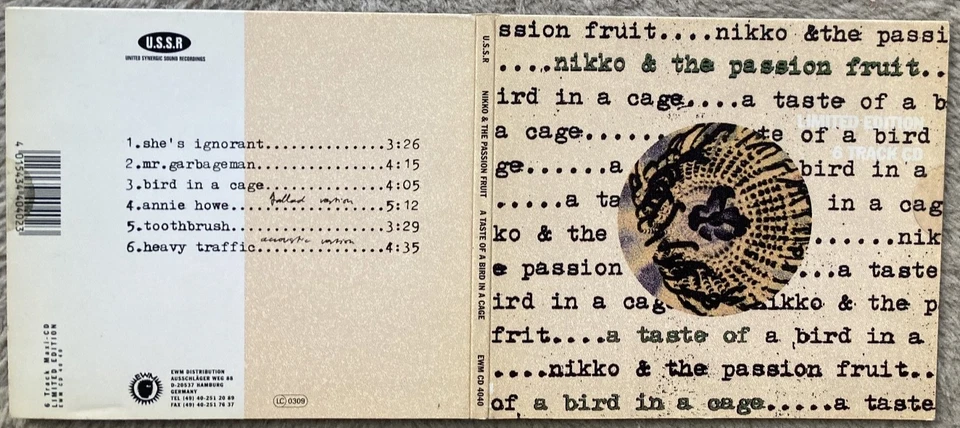 U.S.S.R
UNITED SYNERGIC SOUND RECORDINGS
1.she's ignorant..............3:26
2.mr.garbageman...............4:15
3.bird in a cage..............4:05
ballad version
4.annie howe..................5:12
5.toothbrush..................3:29
acoustic version
6.heavy traffic...............4:35
6 Track Maxi-CD
LIMITED EDITION
EWM CD 40 40
EWM
EWM DISTRIBUTION
AUSSCHLÄGER WEG 68
D-20537 HAMBURG
GERMANY
TEL (49) 40-251 20 89
FAX (49) 40-251 76 37
LC 0309
U.S.S.R NIKKO & THE PASSION FRUIT A TASTE OF A BIRD IN A CAGE EWM CD 4040
ssion fruit....nikko &the passi
....nikko & the passion fruit..
ird in a cage....a taste of a b
LIMITED EDITION
a cage...... te of a bird
6 TRACK CD
ge.....a bird in a
.....a ta in a cag
ko & the ......nik
e passion ...a taste
ird in a cag nikko & the p
frit....a taste of a bird in a
....nikko & the passion fruit..
of a bird in a cage.....a taste